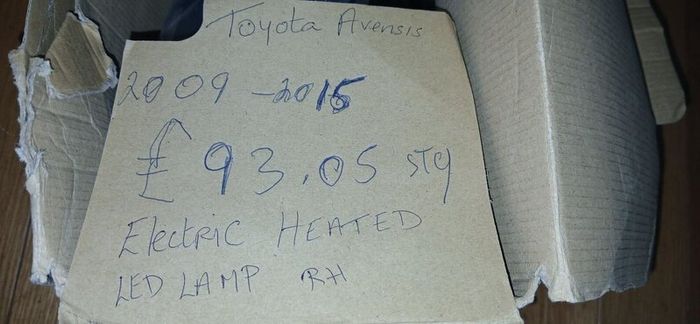 Toyota Avensis
2009 - 2015
£93.05 STG
Electric HEATED
LED LAMP RH